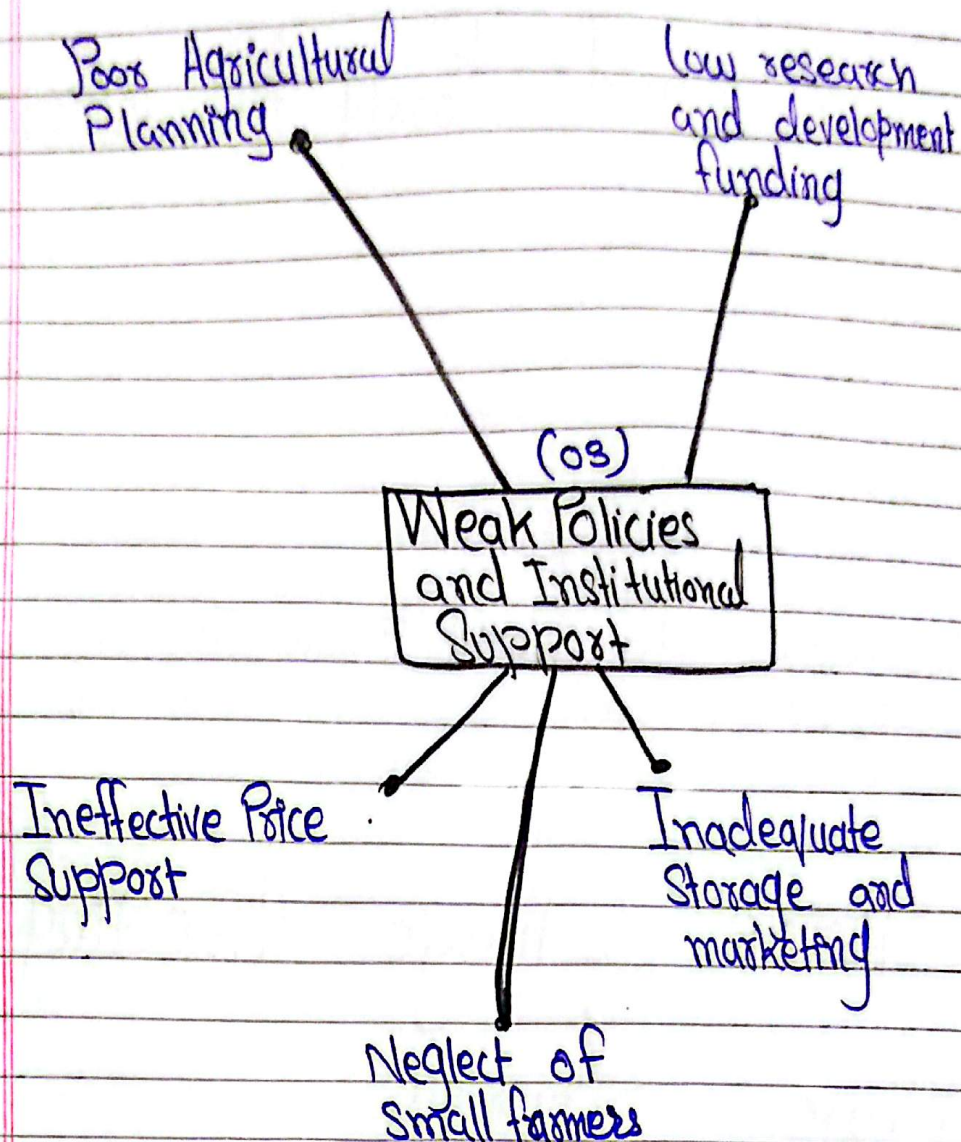 Poor Agricultural
Planning
low research
and development
funding
(03)
Weak Policies
and Institutional
Support
Ineffective Price
Support
Inadequate
Storage and
marketing
Neglect of
small farmers